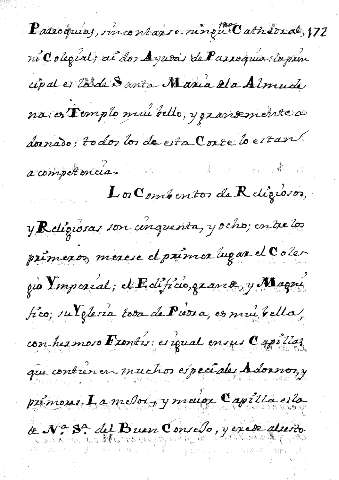 Parroquias, sin contarse ningũa Cathedral, 172
ni Colegial; ai dos Ayudas de Parroquia: la prin
cipal es la de Santa Maria de la Almude
na: es Templo mui bello, y grandemente a
dornado; todos los de esta Corte lo estan
a competencia.
Los Combentos de Religiosos,
y Religiosas son cinquenta, y ocho; entre los
primeros, merese el primer lugar el Cole-
gio Ymperial; el Edificio, grande, y Magni
fico; su Yglesia toda de Piedra, es mui bella,
con hermoso Frontis: es igual en sus Capillas,
que contienen muchos especiales Adornos, y
primores. La mejor, y maior Capilla es la
de Nª. Sª. del Buen Consejo, y exede al resto